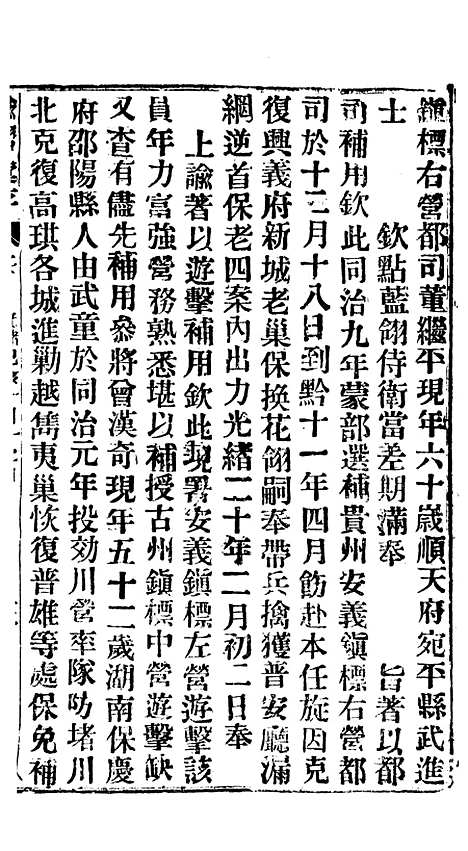 鎮標右營都司董繼平現年六十歲順天府宛平縣武進
士　欽點藍翎侍衛當差期滿奉　旨著以都
司補用欽此同治九年蒙部選補貴州安義鎮標右營都
司於十二月十八日到黔十一年四月飭赴本任旋因克
復興義府新城老巢保換花翎嗣奉帶兵擒獲普安廳漏
網逆首保老四案內出力光緒二十年二月初二日奉
上諭著以遊擊補用欽此現署安義鎮標左營遊擊該
員年力富強營務熟悉堪以補授古州鎮標中營遊擊缺
又查有儘先補用參將曾漢奇現年五十二歲湖南保慶
府邵陽縣人由武童於同治元年投効川營率隊防堵川
北克復高珙各城進勦越嶲夷巢恢復普雄等處保免補